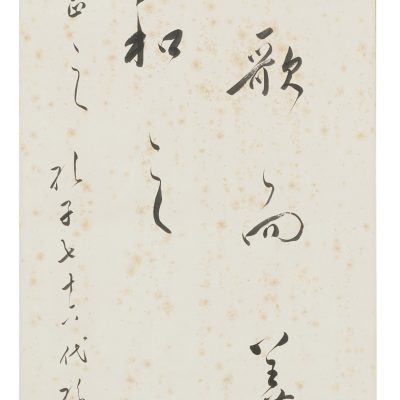 歌而善
和之
正之 孔子七十六代